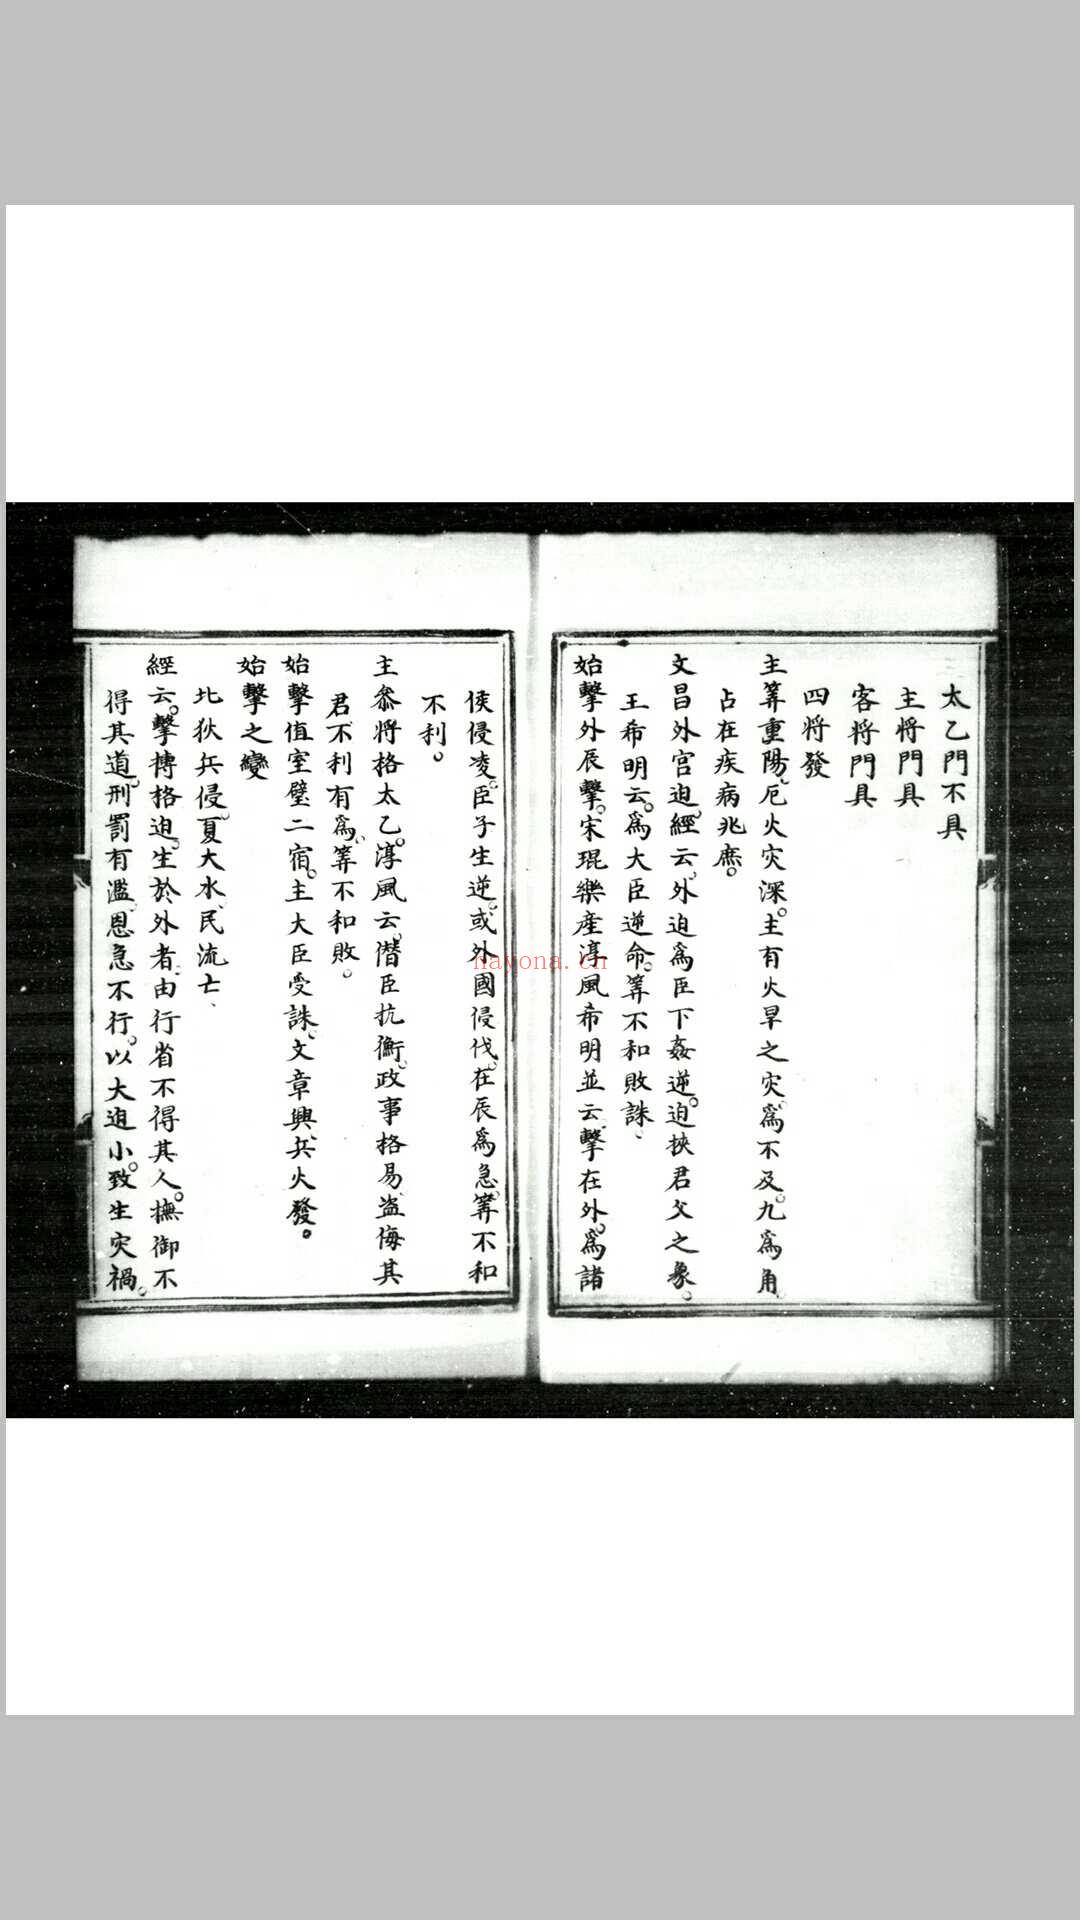 太乙門不具
主將門具
客將門具
四将發
主筭重陽厄火灾深。主有火旱之灾爲不及。九爲角
占在疾病兆庶。
文昌外宮迫經云外迫爲臣下姦逆。迫挾君父之象。
王希明云。爲大臣逆命。筭不和敗誅、
始擊外辰擊。宋琨樂產淳風希明並云擊在外。爲諸
侯侵凌。臣子生逆。或外國侵伐。在辰爲急。筭不和
不利。
主叅將格太乙。淳風云。僭臣抗衡。政事格易盗侮其
君不利有爲、筭不和敗。
始擊值室璧二宿。主大臣受誅、文章興、兵火發。
始擊之變
北狄兵侵夏大水、民流亡、
經云。擊摶格迫。生於外者由行省不得其人。撫御不
得其道。刑罰有濫恩急不行。以大迫小。致生灾禍。
nayona.cn